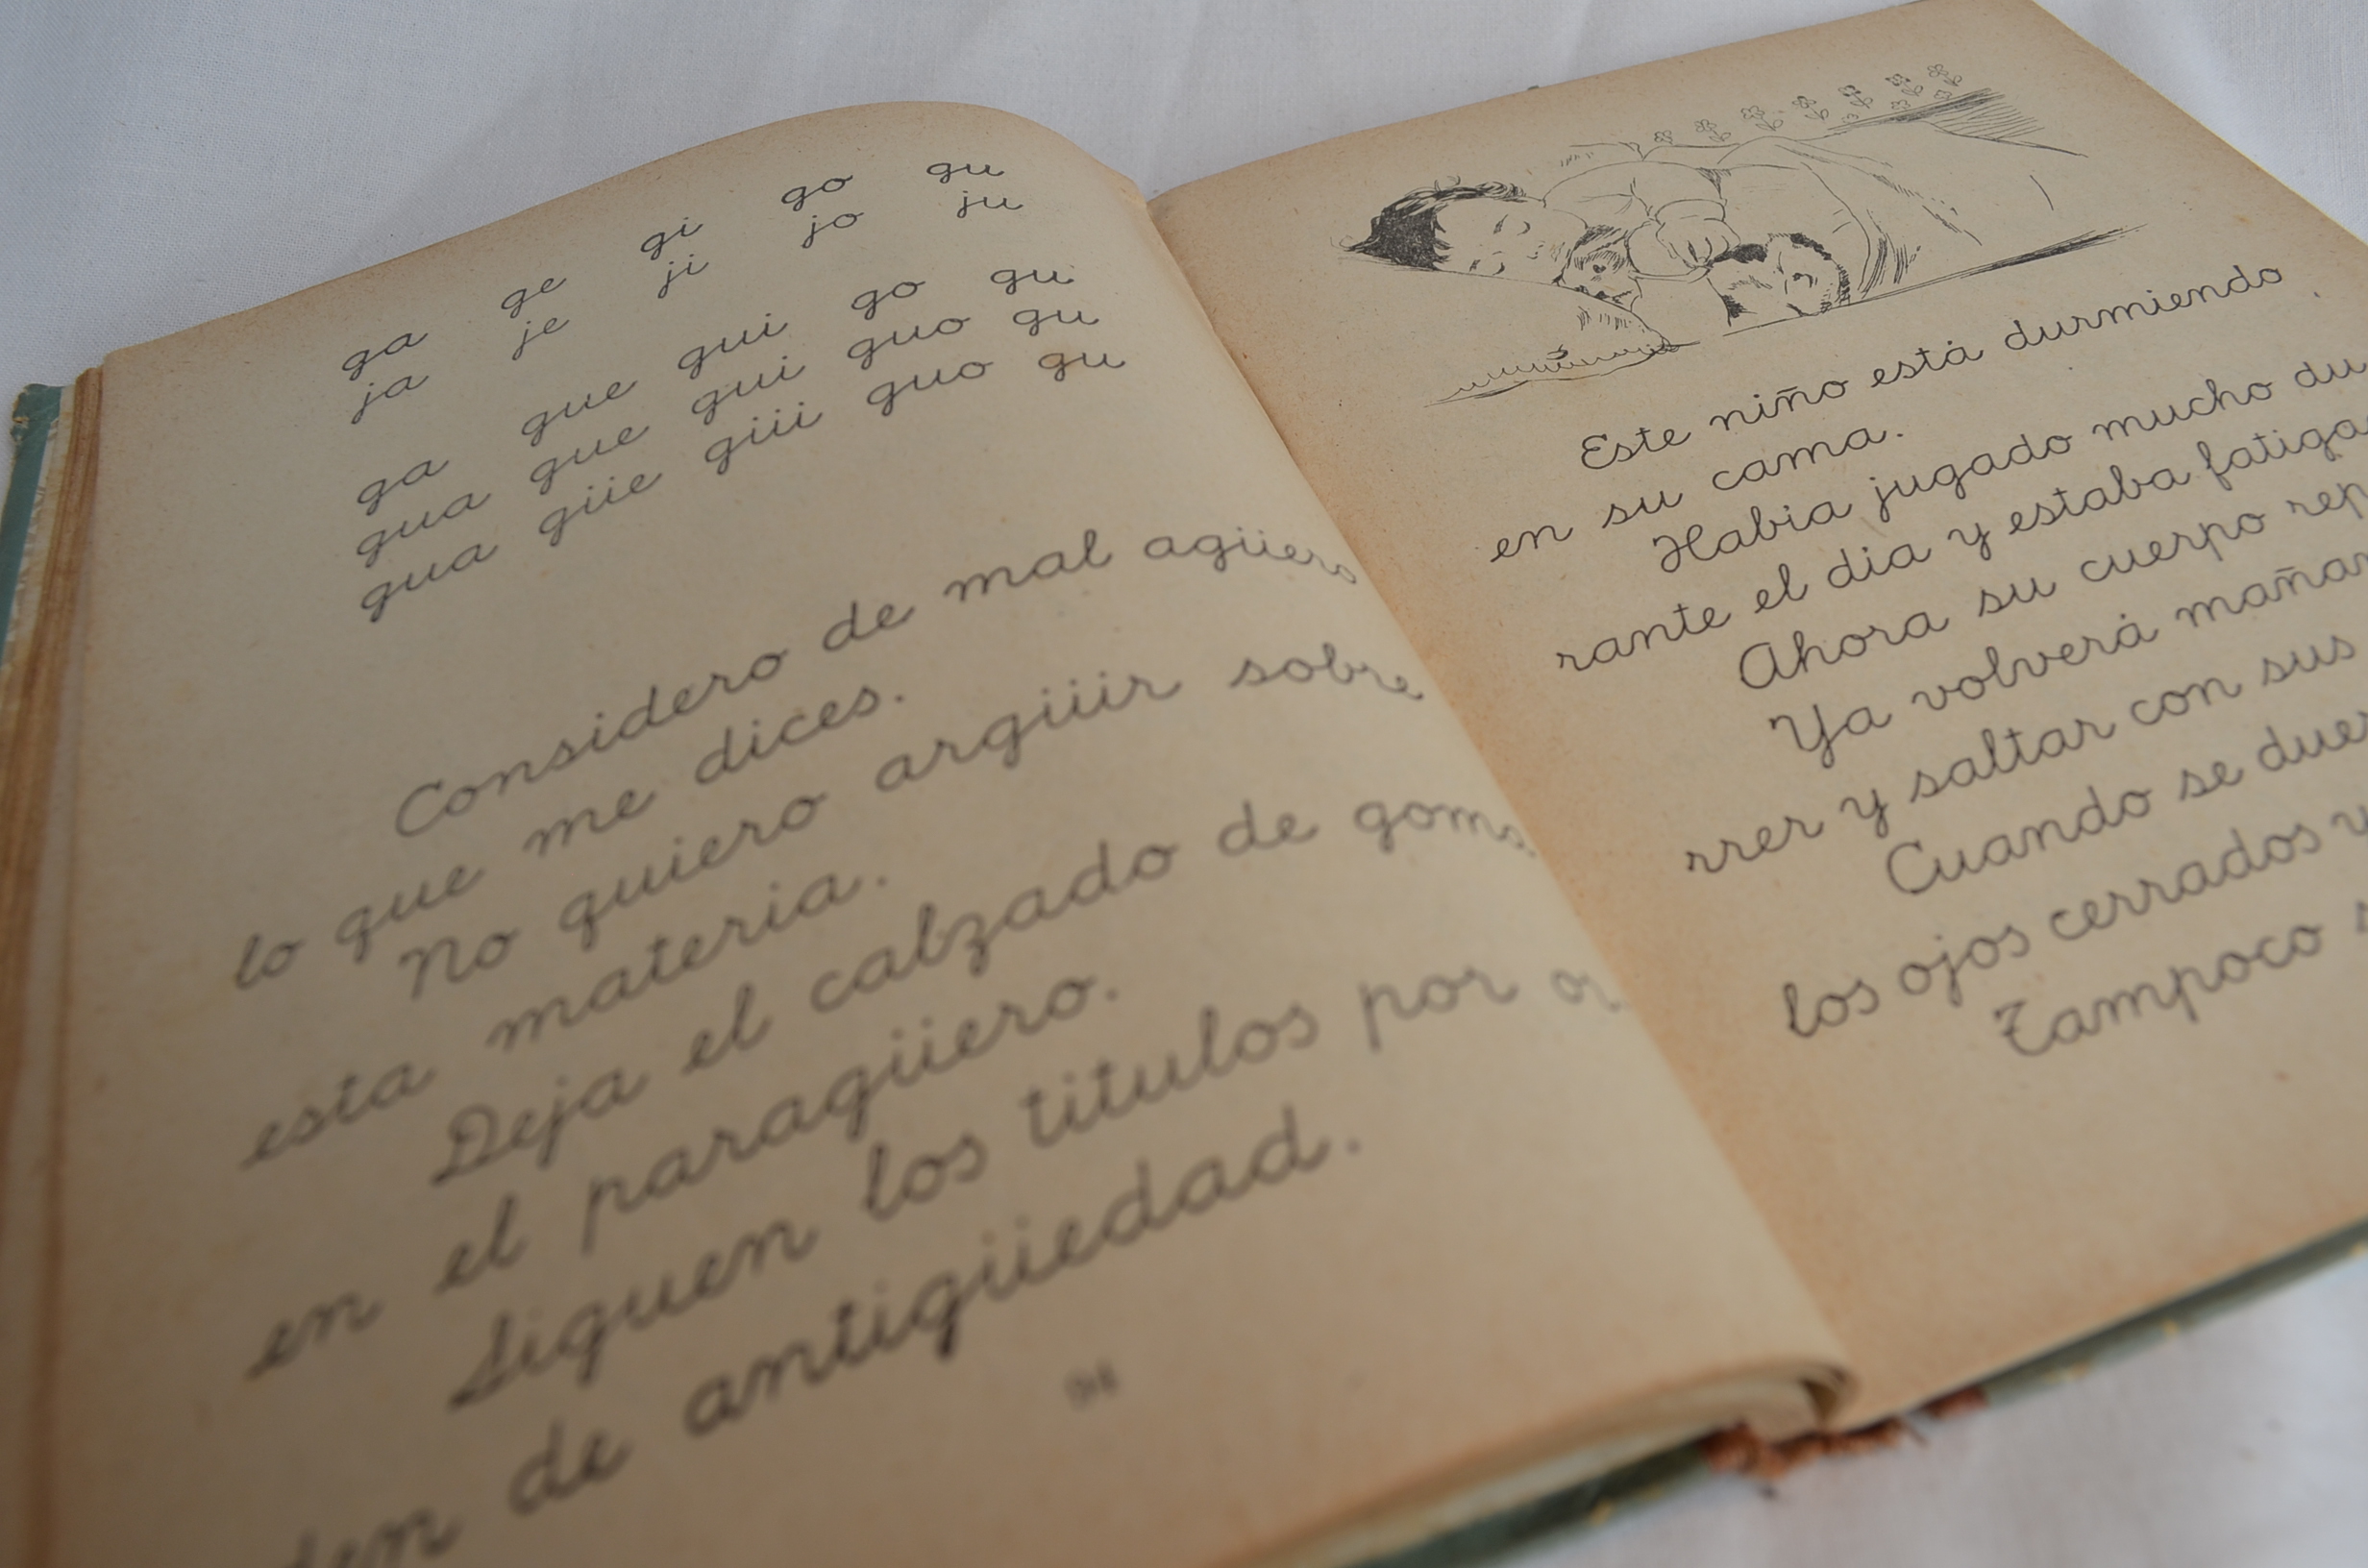 ga ge gi go gu
ja je ji jo ju
ga gue gui go gu
gua gue gui guo gu
gua güe güi guo gu
Considero de mal agüero
lo que me dices.
No quiero argüir sobre
esta materia.
Deja el calzado de goma
en el paragüero.
Siguen los titulos por or
den de antigüedad.
Este niño está durmiendo
en su cama.
Habia jugado mucho du
rante el dia y estaba fatiga
Ahora su cuerpo rep
Ya volverá mañan
rrer y saltar con sus
Cuando se duer
los ojos cerrados y
Tampoco